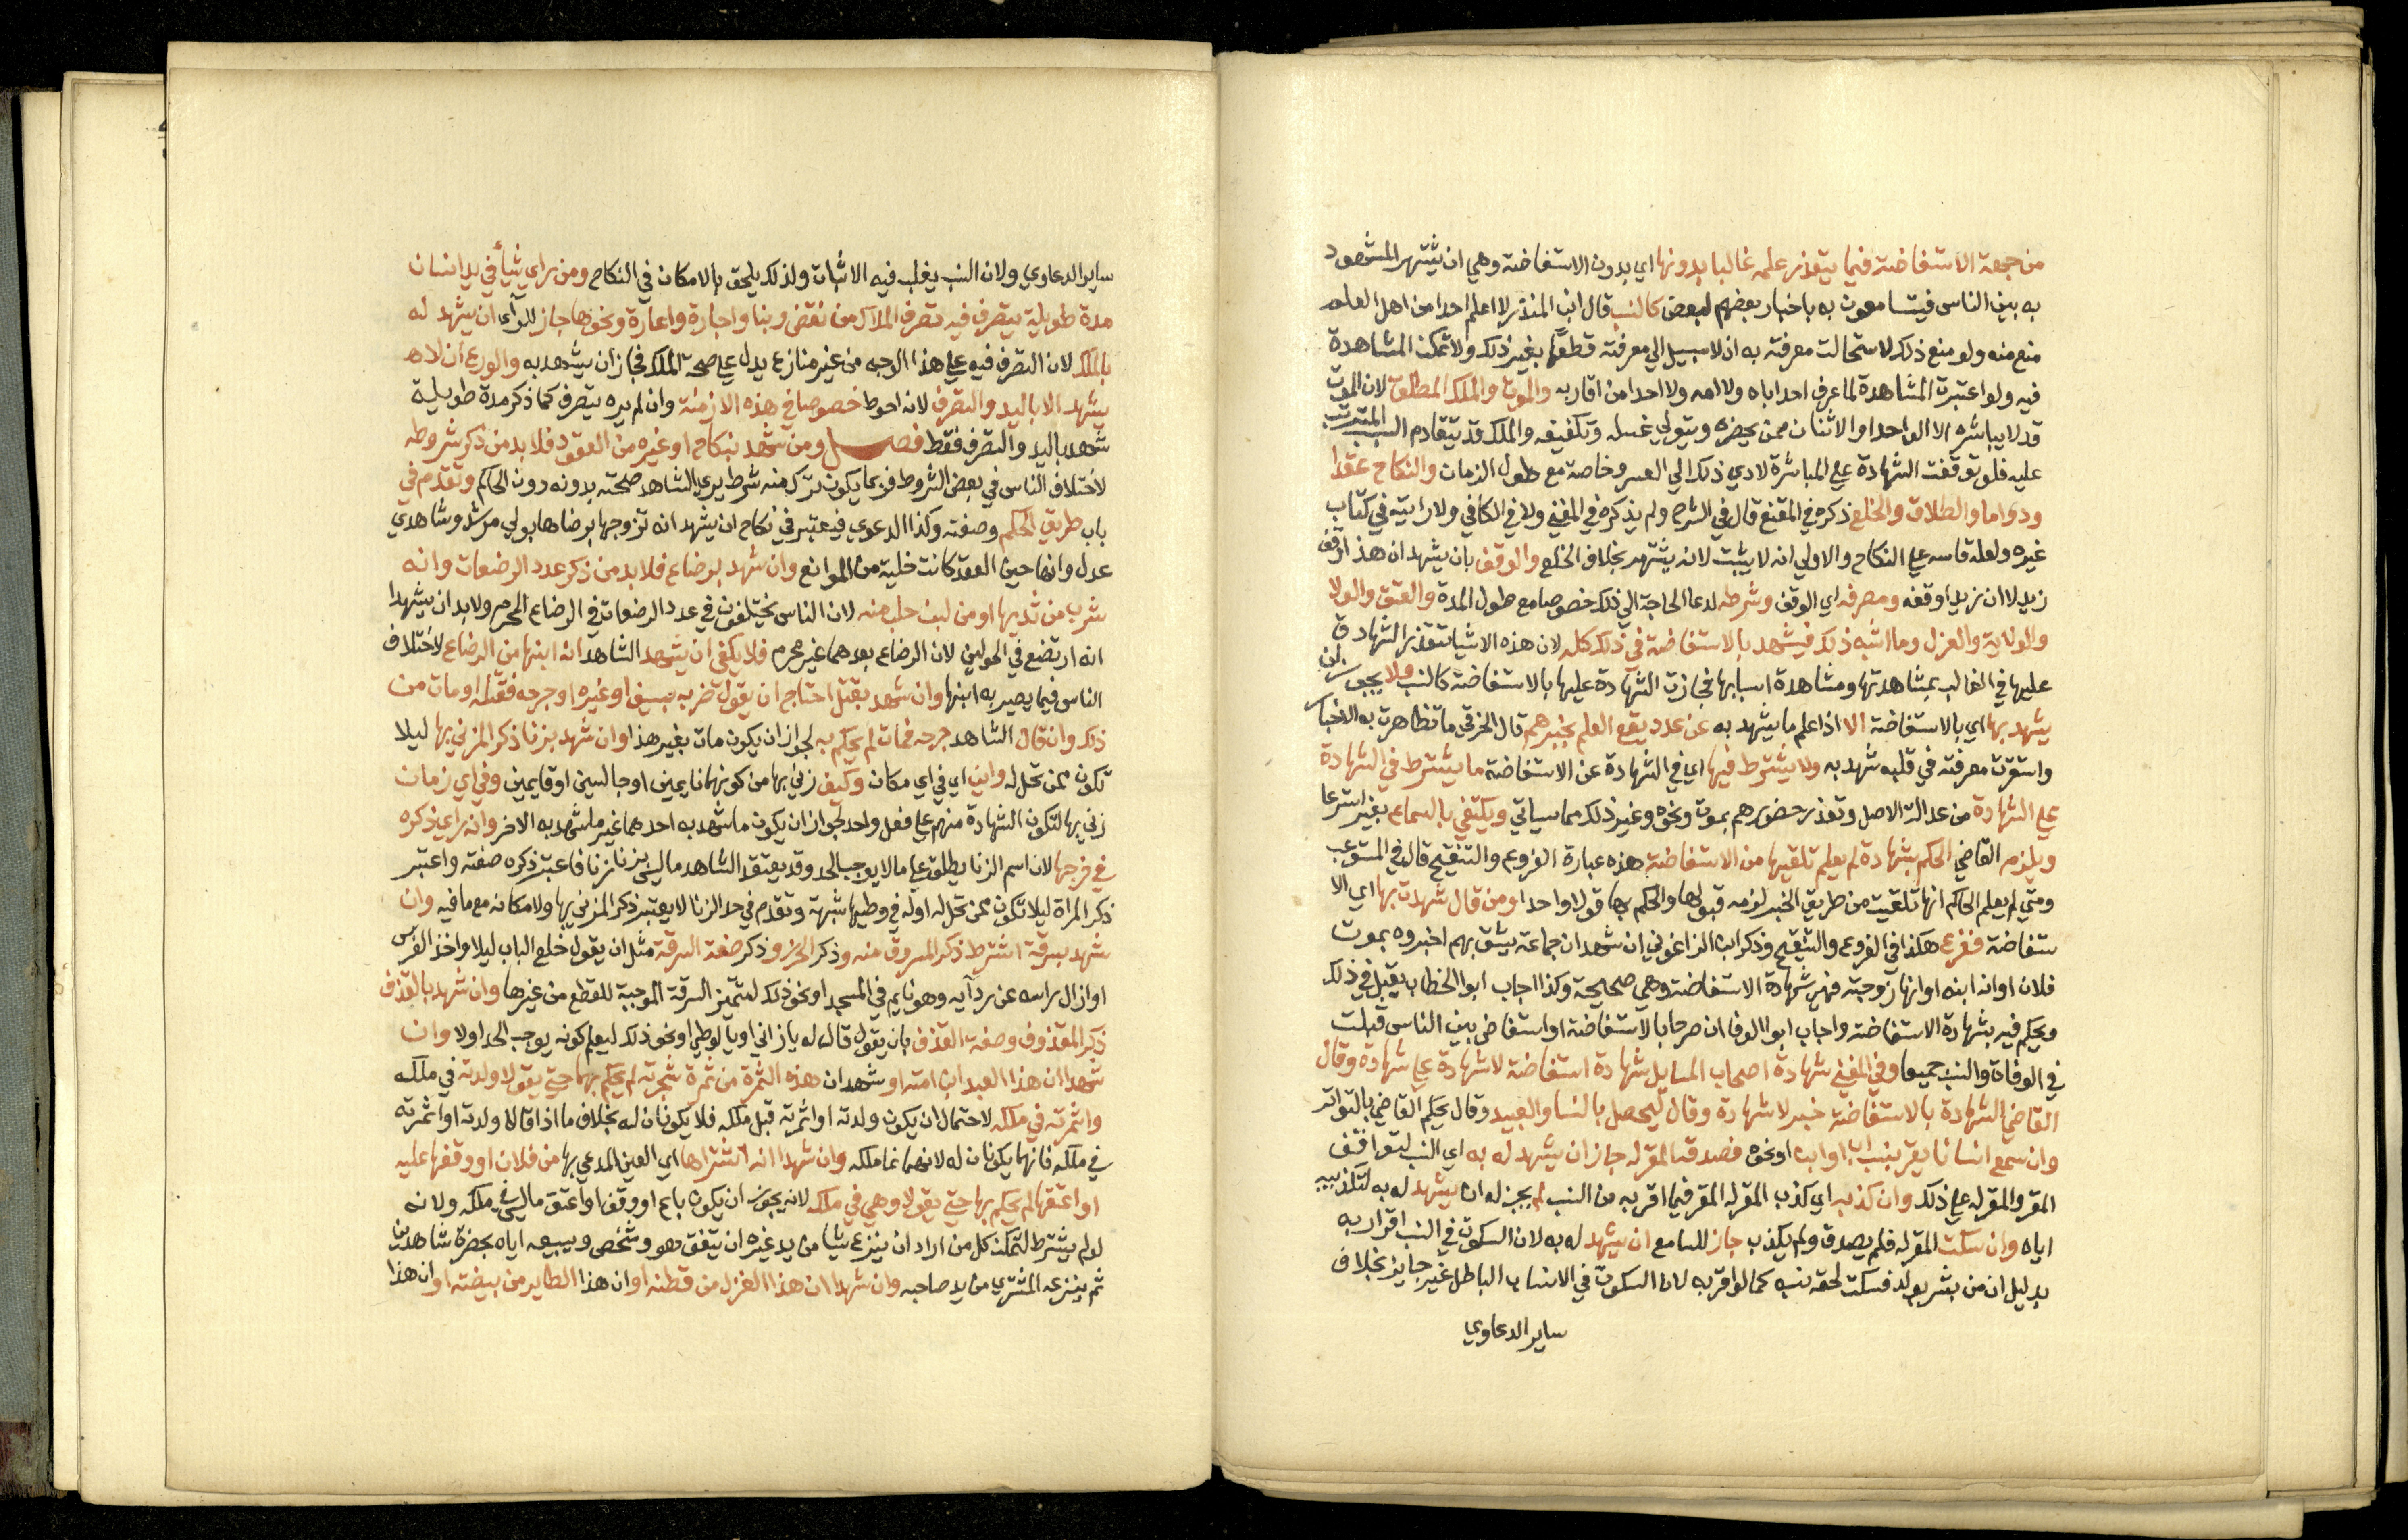 من جهة الاستفاضة فيما يتعذر علمه غالبا بدونها اي بدون الاستفاضة وهي ان يشتهر المشهود
به بين الناس فيتسامعون به باخبار بعضهم لبعض كالنسب قال ابن المنذر لا اعلم احدا من اهل العلم
منع منه ولو منع ذلك لاستحالت معرفته به اذ لا سبيل الي معرفته قطعا بغير ذلك ولا تمكن المشاهدة
فيه ولو اعتبرت المشاهدة لما عرف احد اباه ولا امه ولا احدا من اقاربه والموت والملك المطلق لان الموت
قد لا يباشره الا الواحد او الاثنان ممن يحضره ويتولي غسله وتكفينه والملك قد يتقادم السبب المترتب
عليه فلو توقفت الشهادة علي المباشرة لادي ذلك الي العسر وخاصة مع طول الزمان والنكاح عقدا
ودواما والطلاق والخلع ذكره في المقنع قال في الشرح ولم يذكره في المغني ولا في الكافي ولا رايته في كتاب
غيره ولعله قاسه علي النكاح والاولي انه لا يثبت لانه يشتهر بخلاف الخلع والوقف بان يشهد ان هذا وقف
زيد لا ان زيدا وقفه ومصرفه اي الوقف وشرطه لدعا الحاجة الي ذلك خصوصا مع طول المدة والعتق والولا
والولاية والعزل وما اشبه ذلك فيشهد بالاستفاضة في ذلك كله لان هذه الاشيا تتعذر الشهادة
عليها في الغالب بمشاهدتها ومشاهدة اسبابها فجازت الشهادة عليها بالاستفاضة كالنسب ولا يجوز ان
يشهد بها اي بالاستفاضة الا اذا علم ما يشهد به عن عدد يقع العلم بخبرهم قال الخرقي ما تظاهرت به الاخبار
واستقرت معرفته في قلبه شهد به ولا يشترط فيها اي في الشهادة عن الاستفاضة ما يشترط في الشهادة
علي الشهادة من عدالة الاصل وتعذر حضورهم بموت ونحوه وغير ذلك مما سياتي ويكتفي بالسماع بغير استرعا
ويلزم القاضي الحكم بشهادة لم يعلم تلقيها من الاستفاضة هذه عبارة الفروع والتنقيح قال في المستوعب
ومتي لم يعلم الحاكم انها تلقيت من طريق الخبر لزمه قبولها والحكم بها قولا واحدا ومن قال شهدت بها اي الا
ستفاضة ففرع هكذا في الفروع والتنقيح وذكر ابن الزاغوني ان شهد ان جماعة يثق بهم اخبروه بموت
فلان او انه ابنه او انها زوجته فهي شهادة الاستفاضة وهي صحيحة وكذا اجاب ابو الخطاب يقبل في ذلك
ويحكم فيه بشهادة الاستفاضة واجاب ابوا الوفا ان صرحا بالاستفاضة او استفاض بين الناس قبلت
في الوفاة والنسب جميعا وفي المغني شهادة اصحاب المسايل شهادة استفاضة لا شهادة علي شهادة وقال
القاضي الشهادة بالاستفاضة خبر لا شهادة وقال تحصل بالنسا والعبيد وقال يحكم القاضي بالتواتر
وان سمع انسانا يقر بنسب اب او ابن او نحوه فصدقه المقر له جاز ان يشهد له به اي النسب لتوافق
المقر والمقر له علي ذلك وان كذبه اي كذب المقر له المقر فيما اقر به من النسب لم يجز له ان يشهد له به لتكذيبه
اياه وان سكت المقر له فلم يصدق ولم يكذب جاز للسامع ان يشهد له به لان السكوت في النسب اقرار به
بدليل ان من بشر بولد فسكت لحقه نسبه كما لو اقر به لان السكوت في الانتساب الباطل غير جايز بخلاف
ساير الدعاوي
ساير الدعاوي ولان النسب يغلب فيه الاثبات ولذلك يلحق بالامكان في النكاح ومن راي شيأ في يد انسان
مدة طويلة يتصرف فيه تصرف الملاك من نقض وبنا واجارة واعارة ونحوها جاز للرآي ان يشهد له
بالملك لان التصرف فيه علي هذا الوجه من غير منازع يدل علي صحة الملك فجاز ان يشهد به والورع ان لا
يشهد الا باليد والتصرف لانه احوط خصوصا في هذه الازمنة وان لم يره يتصرف كما ذكر مدة طويلة
شهد باليد والتصرف فقط فصل ومن شهد بنكاح او غيره من العقود فلا بد من ذكر شروطه
لاختلاف الناس في بعض الشروط فربما يكون ترك منه شرط يري الشاهد صحته بدونه دون الحاكم وتقدم في
باب طريق الحكم وصفته وكذا الدعوي فيعتبر في نكاح ان يشهد انه تزوجها برضاها بولي مرشد وشاهدي
عدل وانها حين العقد كانت خلية من الموانع وان شهد برضاع فلا بد من ذكر عدد الرضعات وانه
شرب من ثديها او من لبن حلب منه لان الناس يختلفون في عدد الرضعات في الرضاع المحرم ولا بد ان يشهدا
انه ارتضع في الحولين لان الرضاع بعدهما غير محرم فلا يكفي ان يشهد الشاهد انه ابنها من الرضاع لاختلاف
الناس فيما يصير به ابنها وان شهد بقتل احتاج ان يقول ضربه بسيف او غيره او جرحه فقتله او مات من
ذلك وان قال الشاهد جرحه فمات لم يحكم به لجواز ان يكون مات بغير هذا وان شهد بزنا ذكر المزني بها ليلا
تكون ممن تحل له واين اي في اي مكان وكيف زني بها من كونهما نايمين او جالسين او قايمين وفي اي زمان
زني بها لتكون الشهادة منهم علي فعل واحد لجواز ان يكون ما شهد به احدهما غير ما شهد به الاخر وانه راي ذكره
في فرجها لان اسم الزنا يطلق علي ما لا يوجب الحد وقد يعتقد الشاهد ما ليس بزنا زنا فاعتبر ذكره صفته واعتبر
ذكر المراة ليلا تكون ممن تحل له او له في وطيها شبهة وتقدم في حد الزنا لا يعتبر ذكر المزني بها ولا مكانه مع ما فيه وان
شهد بسرقة اشترط ذكر المسروق منه وذكر الحرز وذكر صفة السرقة مثل ان يقول خلع الباب ليلا واخذ الفرس
او ازال راسه عن ردآيه وهو نايم في المسجد او نحو ذلك لتتميز السرقة الموجبة للقطع من غيرها وان شهد بالقذف
ذكر المقذوف وصفة القذف بان يقول قال له يا زاني او يا لوطي او نحو ذلك ليعلم كونه يوجب الحد اولا وان
شهدا ان هذا العبد ابن امته او شهد ان هذه الثمرة من ثمرة شجرته لم يحكم بهما حتي يقولا ولدته في ملكه
واثمرته في ملكه لاحتمال ان يكون ولدته او اثمرته قبل ملكه فلا يكونان له بخلاف ما اذا قالا ولدته او اثمرته
في ملكه فانهما يكونان له لانهما نما ملكه وان شهدا انه اشتراها اي العين المدعي بها من فلان او وقفها عليه
او اعتقها لم يحكم بها حتي يقولا وهي في ملكه لانه يجوز ان يكون باع او وقف او اعتق ما ليس في ملكه ولانه
لو لم يشترط لتمكن كل من اراد ان ينزع شيا من يد غيره ان يتفق هو وشخص ويبيعه اياه بحضرة شاهدين
ثم ينزعه المشتري من يد صاحبه وان شهدا ان هذا الغزل من قطنه او ان هذا الطاير من بيضته او ان هذا